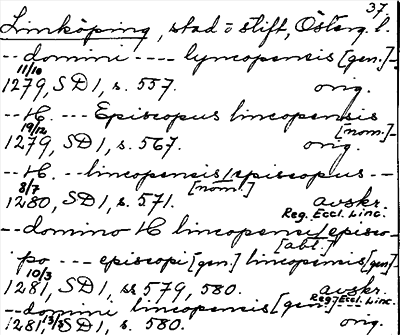 37.
Linköping, stad o stift, Österg. l.
-- domini ---- lyncopensis [gen.] -
11/10
1279, SD 1, s. 557. orig.
-- H. --- Episcopus lincopensis
[nom.] -
19/12
1279, SD 1, s. 567. orig.
-- H. -- lincopensis/episcopus --
[nom.]
8/7
1280, SD 1, s. 571. avskr.
Reg. Eccl. Linc.
-- domino H lincopensi/episco-
[abl.]
po --- episcopi [gen.] lincopensis [gen.] -
10/3
1281, SD 1, ss 579, 580. avskr.
Reg. Eccl. Linc.
-- domini lincopensis [gen.] ---
1281, SD 1, s. 580. orig.